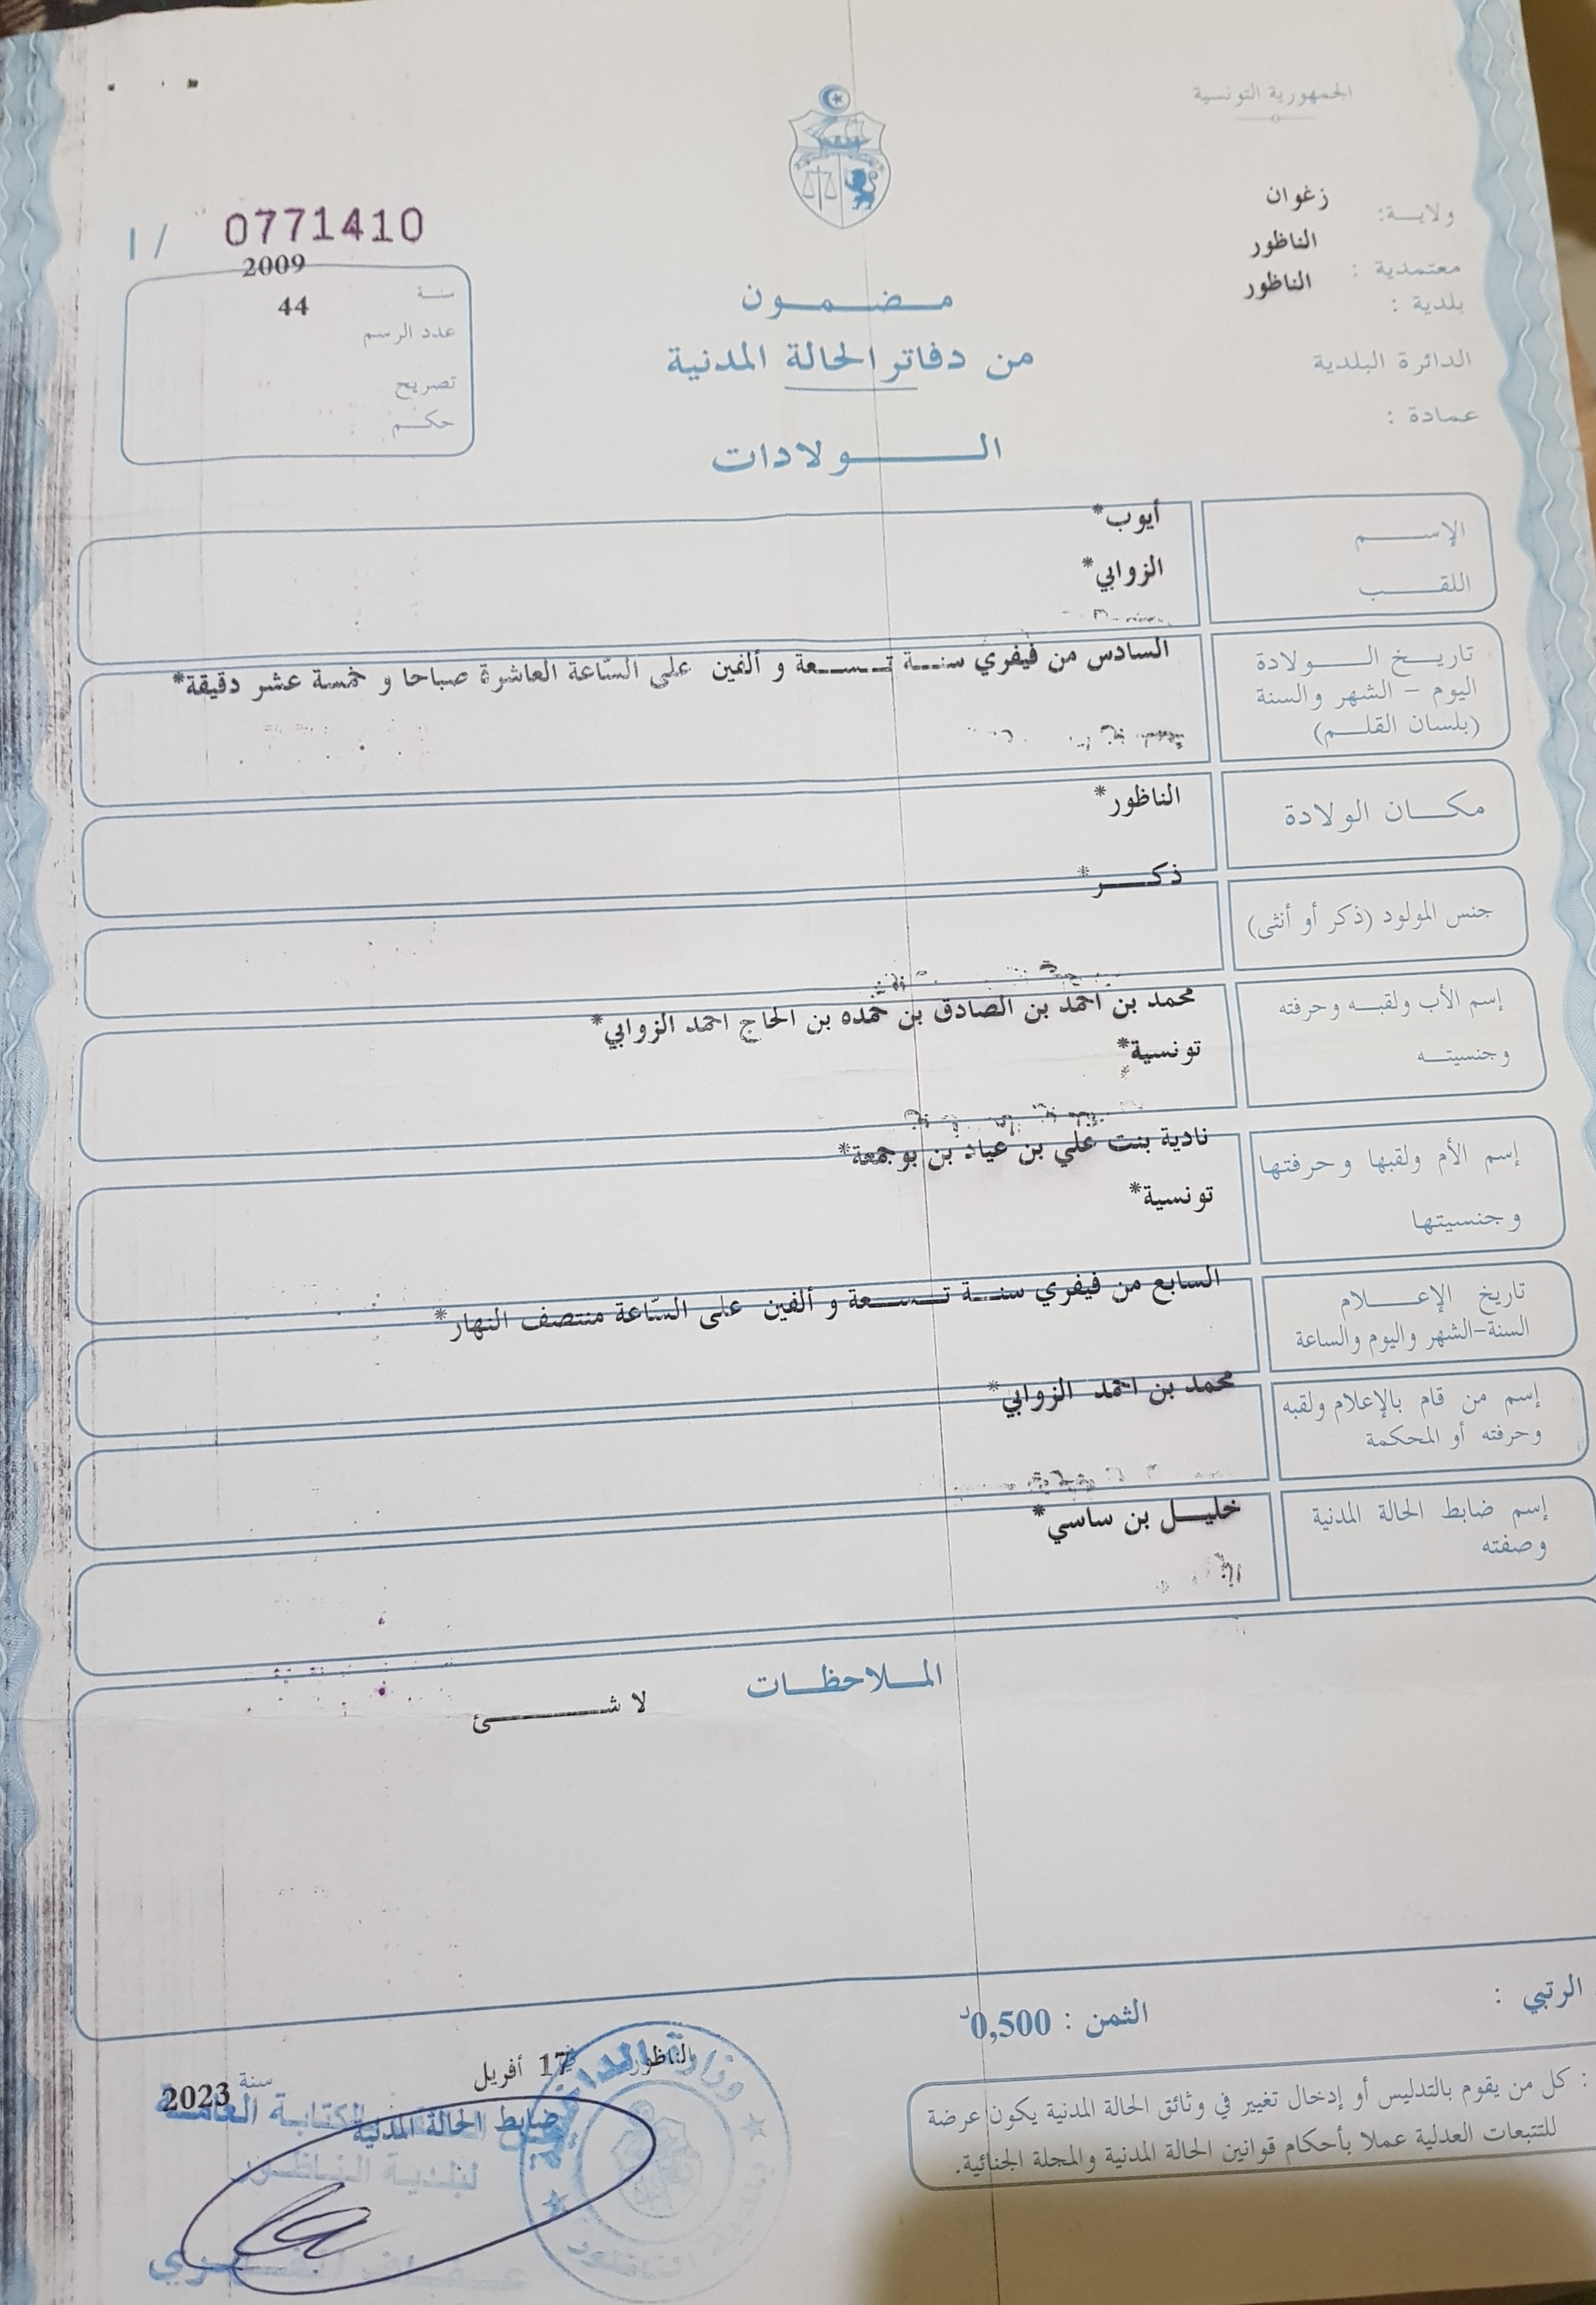 الجمهورية التونسية
ولايـــة: زغوان
معتمدية : الناظور
بلدية : الناظور
الدائرة البلدية
عمادة :
مـــضـــمـــون
من دفاتر الحالة المدنية
الـــــولادات
1/ 0771410
سنة 2009
عدد الرسم 44
تصريح
حكــم
الإســـــم أيوب*
اللقـــــب الزوابي*
تاريــخ الـــــولادة
اليوم – الشهر والسنة
(بلسان القلـــم)
السادس من فيفري سنـــة تـــسعة و ألفين على السّاعة العاشرة صباحا و خمسة عشر دقيقة*
مكـــان الولادة الناظور*
جنس المولود (ذكر أو أنثى) ذكـــر*
إسم الأب ولقبــه وحرفته محمد بن احمد بن الصادق بن حمده بن الحاج احمد الزوابي*
وجنسيتـــه تونسية*
إسم الأم ولقبها وحرفتها نادية بنت علي بن عياد بن بوجمعة*
وجنسيتها تونسية*
تاريخ الإعـــلام
السنة-الشهر واليوم والساعة
السابع من فيفري سنـــة تـــسعة و ألفين على السّاعة منتصف النهار*
إسم من قام بالإعلام ولقبه
وحرفته أو المحكمة
محمد بن احمد الزوابي*
إسم ضابط الحالة المدنية
وصفته
خليـــل بن ساسي*
المــلاحظــات
لا شـــــئ
الرتبي :
الثمن : 0,500د
الناظور 17 أفريل سنة 2023
ضابط الحالة المدنية
: كل من يقوم بالتدليس أو إدخال تغيير في وثائق الحالة المدنية يكون عرضة
للتتبعات العدلية عملا بأحكام قوانين الحالة المدنية والمجلة الجنائية.
وزارة الداخلية